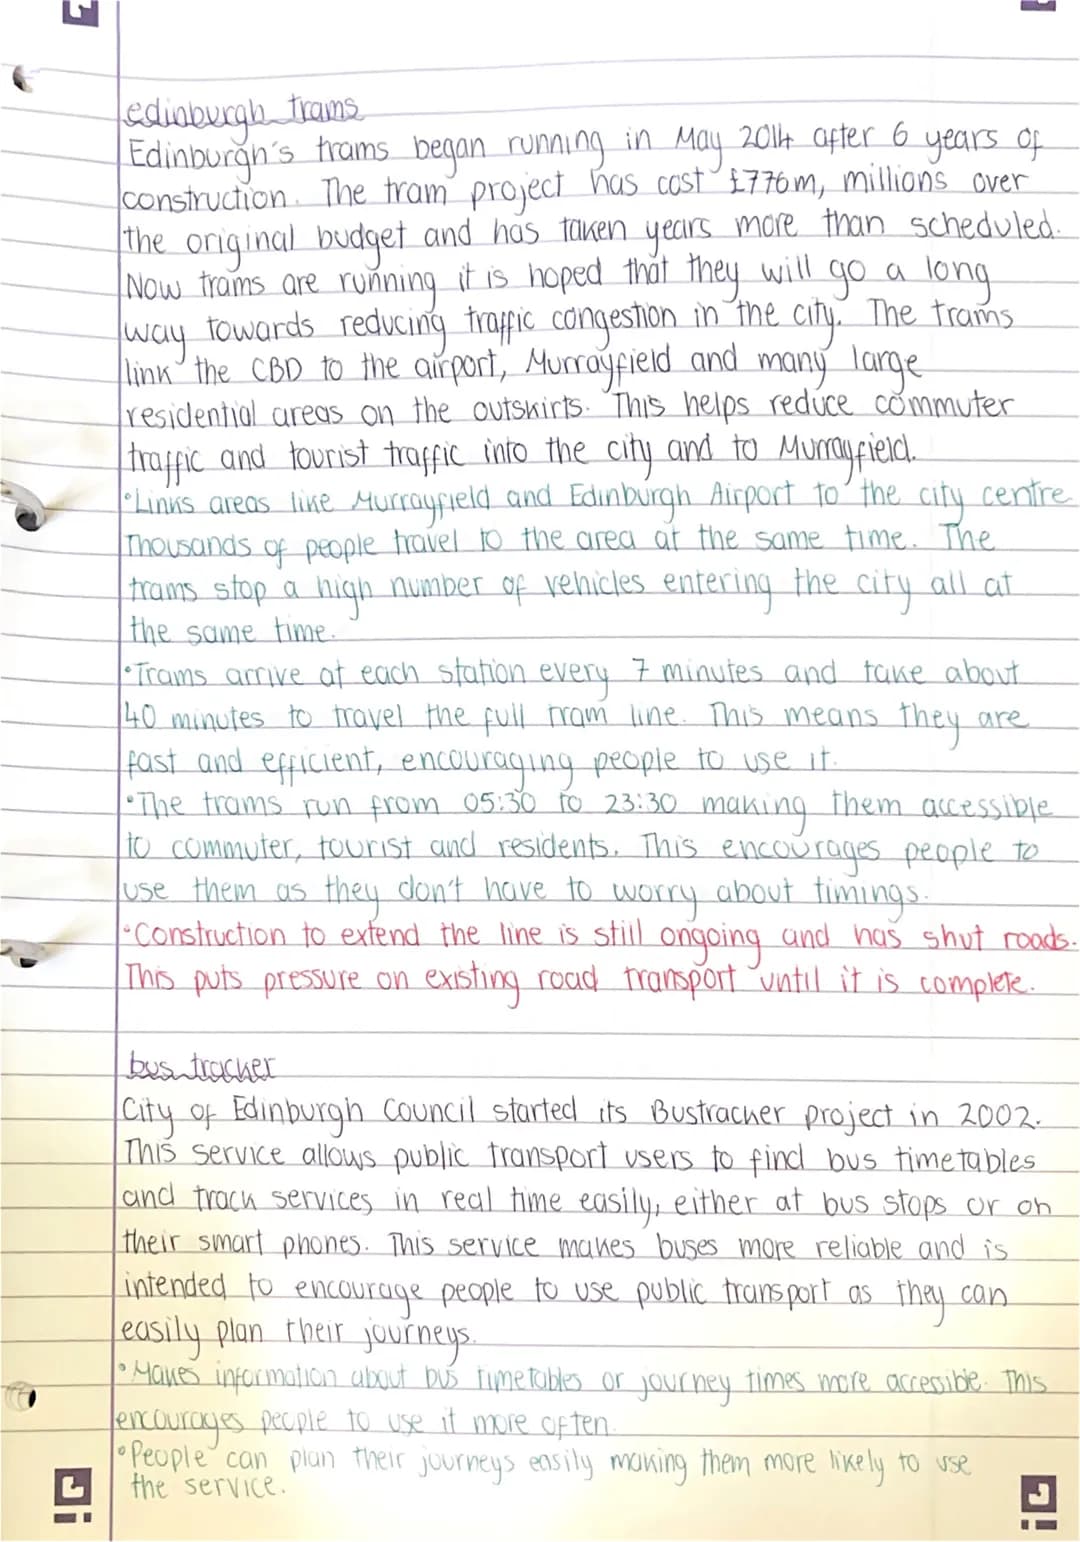 edinburgh trams
Edinburgh's trams began running in May 2014 after 6 years of
construction. The tram project has cost £776m, millions over
the original budget and has taken years more than scheduled.
Now trams are running it is hoped that they will go a long
way towards reducing traffic congestion in the city. The trams
link the CBD to the airport, Murrayfield and many large
residential areas on the outskirts. This helps reduce commuter
traffic and tourist traffic into the city and to Murrayfield.
•Links areas like Murrayfield and Edinburgh Airport to the city centre
Thousands of people travel to the area at the same time. The
trams stop a high number of vehicles entering the city all at
the same time.
•Trams arrive at each station every 7 minutes and take about
40 minutes to travel the full tram line. This means they are
fast and efficient, encouraging people to use it.
•The trams run from 05:30 to 23:30 making them accessible
to commuter, tourist and residents. This encourages people to
use them as they don't have to worry about timings.
•Construction to extend the line is still ongoing and has shut roads.
This puts pressure on existing road transport until it is complete.
bus tracker
City of Edinburgh Council started its Bustracker project in 2002.
This service allows public transport users to find bus timetables
and track services in real time easily, either at bus stops or on
their smart phones. This service makes buses more reliable and is
intended to encourage people to use public transport as they can
easily plan their journeys.
•Makes information about bus timetables or journey times more accessible. This
encourages people to use it more often.
•People can plan their journeys easily making them more likely to use
the service.